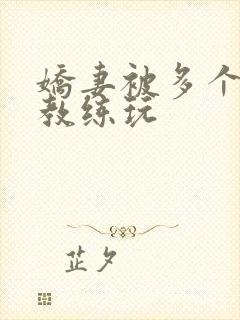 嬌妻被多个
教练玩
芷夕